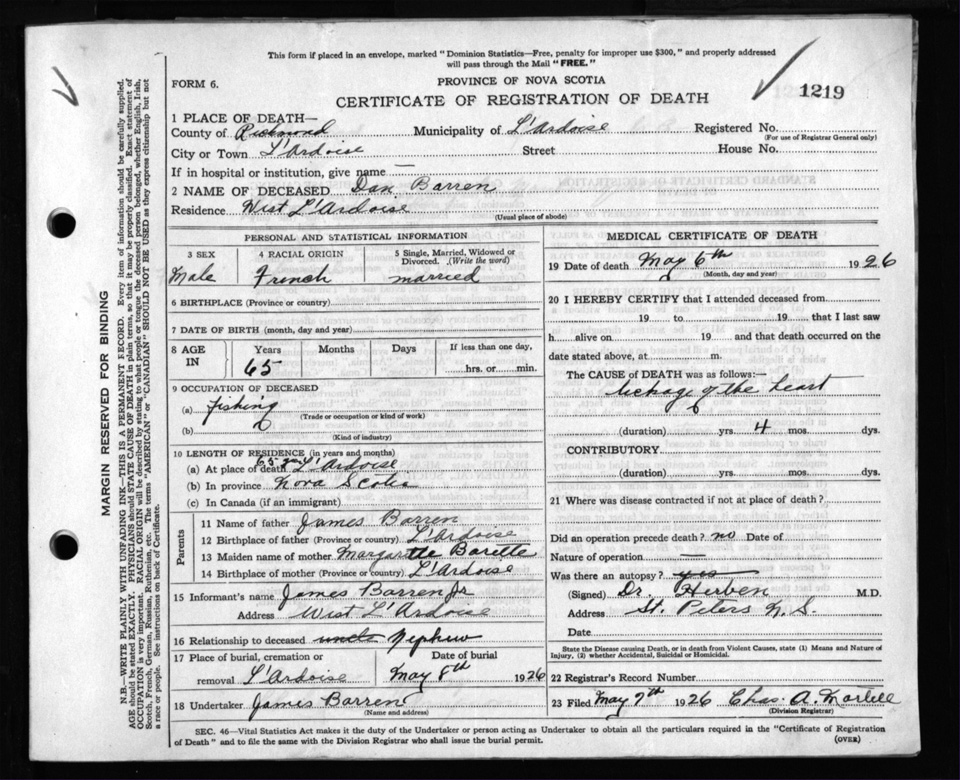 This form if placed in an envelope, marked "Dominion Statistics—Free, penalty for improper use $300," and properly addressed
will pass through the Mail "FREE."
FORM 6.
PROVINCE OF NOVA SCOTIA
1219
CERTIFICATE OF REGISTRATION OF DEATH
1 PLACE OF DEATH—
County of Richmond Municipality of L'Ardoise Registered No.
(For use of Registrar General only)
City or Town L'Ardoise Street House No.
If in hospital or institution, give name —
2 NAME OF DECEASED Dan Barren
Residence West L'Ardoise
(Usual place of abode)
PERSONAL AND STATISTICAL INFORMATION
3 SEX 4 RACIAL ORIGIN 5 Single, Married, Widowed or
Divorced. (Write the word)
Male French married
6 BIRTHPLACE (Province or country)
7 DATE OF BIRTH (month, day and year)
8 AGE IN Years Months Days If less than one day,
65 hrs. or min.
9 OCCUPATION OF DECEASED
(a) fishing
(Trade or occupation or kind of work)
(b)
(Kind of industry)
10 LENGTH OF RESIDENCE (in years and months)
(a) At place of death 65 yrs L'Ardoise
(b) In province Nova Scotia
(c) In Canada (if an immigrant)
Parents
11 Name of father James Barren
12 Birthplace of father (Province or country) L'Ardoise
13 Maiden name of mother Margarette Barette
14 Birthplace of mother (Province or country) L'Ardoise
15 Informant's name James Barren Jr
Address West L'Ardoise
16 Relationship to deceased uncle Nephew
17 Place of burial, cremation or Date of burial
removal L'Ardoise May 8th 1926
18 Undertaker James Barren
(Name and address)
MEDICAL CERTIFICATE OF DEATH
19 Date of death May 6th 1926
(Month, day and year)
20 I HEREBY CERTIFY that I attended deceased from
19 to 19 that I last saw
h alive on 19 and that death occurred on the
date stated above, at m.
The CAUSE of DEATH was as follows:—
leckage of the heart
(duration) yrs. 4 mos. dys.
CONTRIBUTORY
(duration) yrs. mos. dys.
21 Where was disease contracted if not at place of death?
Did an operation precede death? no Date of
Nature of operation —
Was there an autopsy? yes
(Signed) Dr. Herben M.D.
Address St. Peters N.S.
Date
State the Disease causing Death, or in death from Violent Causes, state (1) Means and Nature of
Injury, (2) whether Accidental, Suicidal or Homicidal.
22 Registrar's Record Number
23 Filed May 7th 1926 Chas A.
(Division Registrar)
SEC. 46—Vital Statistics Act makes it the duty of the Undertaker or person acting as Undertaker to obtain all the particulars required in the "Certificate of Registration
of Death" and to file the same with the Division Registrar who shall issue the burial permit.
(OVER)
MARGIN RESERVED FOR BINDING
N.B.—WRITE PLAINLY WITH UNFADING INK—THIS IS A PERMANENT RECORD. Every item of information should be carefully supplied.
AGE should be stated EXACTLY. PHYSICIANS should STATE CAUSE OF DEATH in plain terms, so that it may be properly classified. Exact statement of
OCCUPATION is very important. RACIAL ORIGIN will be described by stating to what people or tongue the deceased person belonged, whether English, Irish,
Scotch, French, German, Russian, Ruthenian, etc. The terms "AMERICAN" or "CANADIAN" SHOULD NOT BE USED as they express citizenship but not
a race or people. See instructions on back of Certificate.